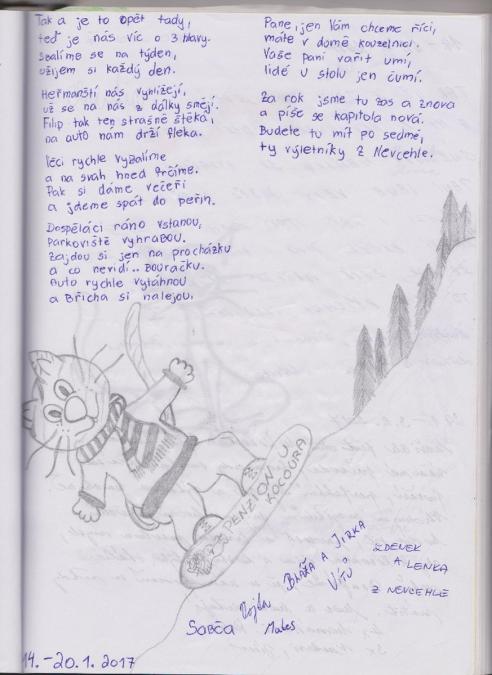 Tak a je to opět tady,
teď je nás víc o 3 hlavy.
Sbalíme se na týden,
užijem si každý den.
Heřmanští nás vyhlížejí,
už se na nás z dálky smějí.
Filip tak ten strašně štěká,
na auto nám drží fleka.
Věci rychle vybalíme
a na svah hned frčíme.
Pak si dáme večeři
a jdeme spát do peřin.
Dospěláci ráno vstanou,
Parkoviště vyhrabou.
Zajdou si jen na procházku
a co nevidí.. Bouračku.
Auto rychle vytáhnou
a Břicha si nalejou.
Pane, jen Vám chceme říci,
máte v domě kouzelnici.
Vaše paní vařit umí,
lidé u stolu jen čumí.
Za rok jsme tu zas a znova
a píše se kapitola nová.
Budete tu mít po sedmé,
ty výletníky z Nevcehle.
PENZION U
KOCOURA
BLÁŽA A JIRKA
VÍTŮ
ZDENEK
A LENKA
Z NEVCEHLE
Vojta
Sabča Mates
14.-20.1.2017